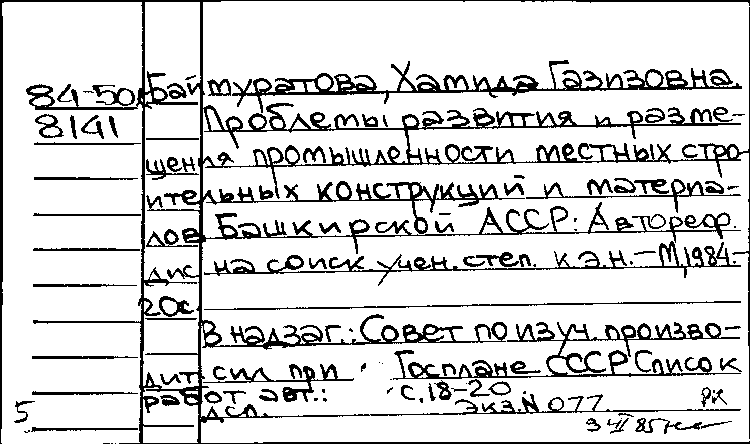 84-50 Баймуратова, Хамида Газизовна.
8141 Проблемы развития и разме-
щения промышленности местных стро-
ительных конструкций и материа-
лов Башкирской АССР: Автореф.
дис на соиск учен. степ. к.э.н. - М, 1984. -
20с.
В надзаг.: Совет по изуч. произво-
дит. сил при Госплане СССР Список
работ авт.: с. 18-20.
5 дсп. экз. N 077.